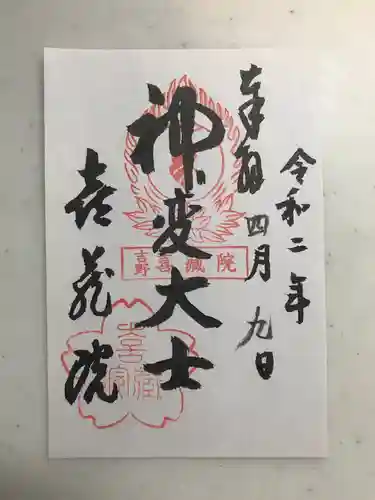 奉拝
令和二年
四月九日
神変大士
吉野 喜蔵院
喜蔵院